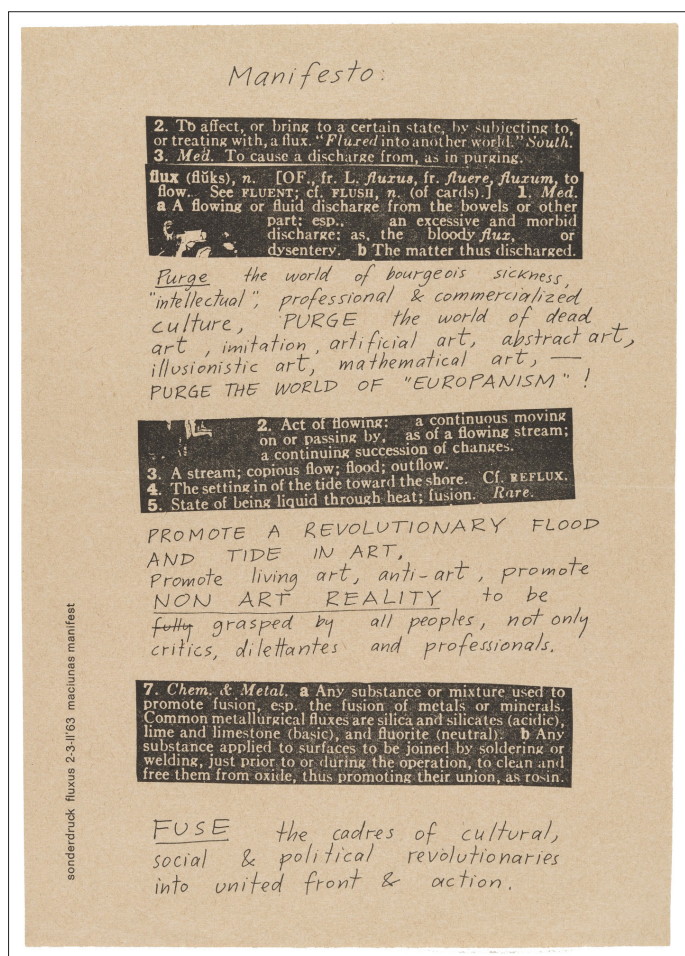 Manifesto:
2. To affect, or bring to a certain state, by subjecting to,
or treating with, a flux. "Fluxed into another world." South.
3. Med. To cause a discharge from, as in purging.
flux (flŭks), n. [OF., fr. L. fluxus, fr. fluere, fluxum, to
flow. See FLUENT; cf. FLUSH, n. (of cards).] 1. Med.
a A flowing or fluid discharge from the bowels or other
part: esp., an excessive and morbid
discharge: as, the bloody flux, or
dysentery. b The matter thus discharged.
Purge the world of bourgeois sickness,
"intellectual", professional & commercialized
culture, PURGE the world of dead
art, imitation, artificial art, abstract art,
illusionistic art, mathematical art, —
PURGE THE WORLD OF "EUROPANISM"!
2. Act of flowing: a continuous moving
on or passing by, as of a flowing stream;
a continuing succession of changes.
3. A stream; copious flow; flood; outflow.
4. The setting in of the tide toward the shore. Cf. REFLUX.
5. State of being liquid through heat; fusion. Rare.
PROMOTE A REVOLUTIONARY FLOOD
AND TIDE IN ART,
Promote living art, anti-art, promote
NON ART REALITY to be
fully grasped by all peoples, not only
critics, dilettantes and professionals.
7. Chem. & Metal. a Any substance or mixture used to
promote fusion, esp. the fusion of metals or minerals.
Common metallurgical fluxes are silica and silicates (acidic),
lime and limestone (basic), and fluorite (neutral). b Any
substance applied to surfaces to be joined by soldering or
welding, just prior to or during the operation, to clean and
free them from oxide, thus promoting their union, as rosin.
FUSE the cadres of cultural,
social & political revolutionaries
into united front & action.
sonderdruck fluxus 2-3-II'63 maciunas manifest